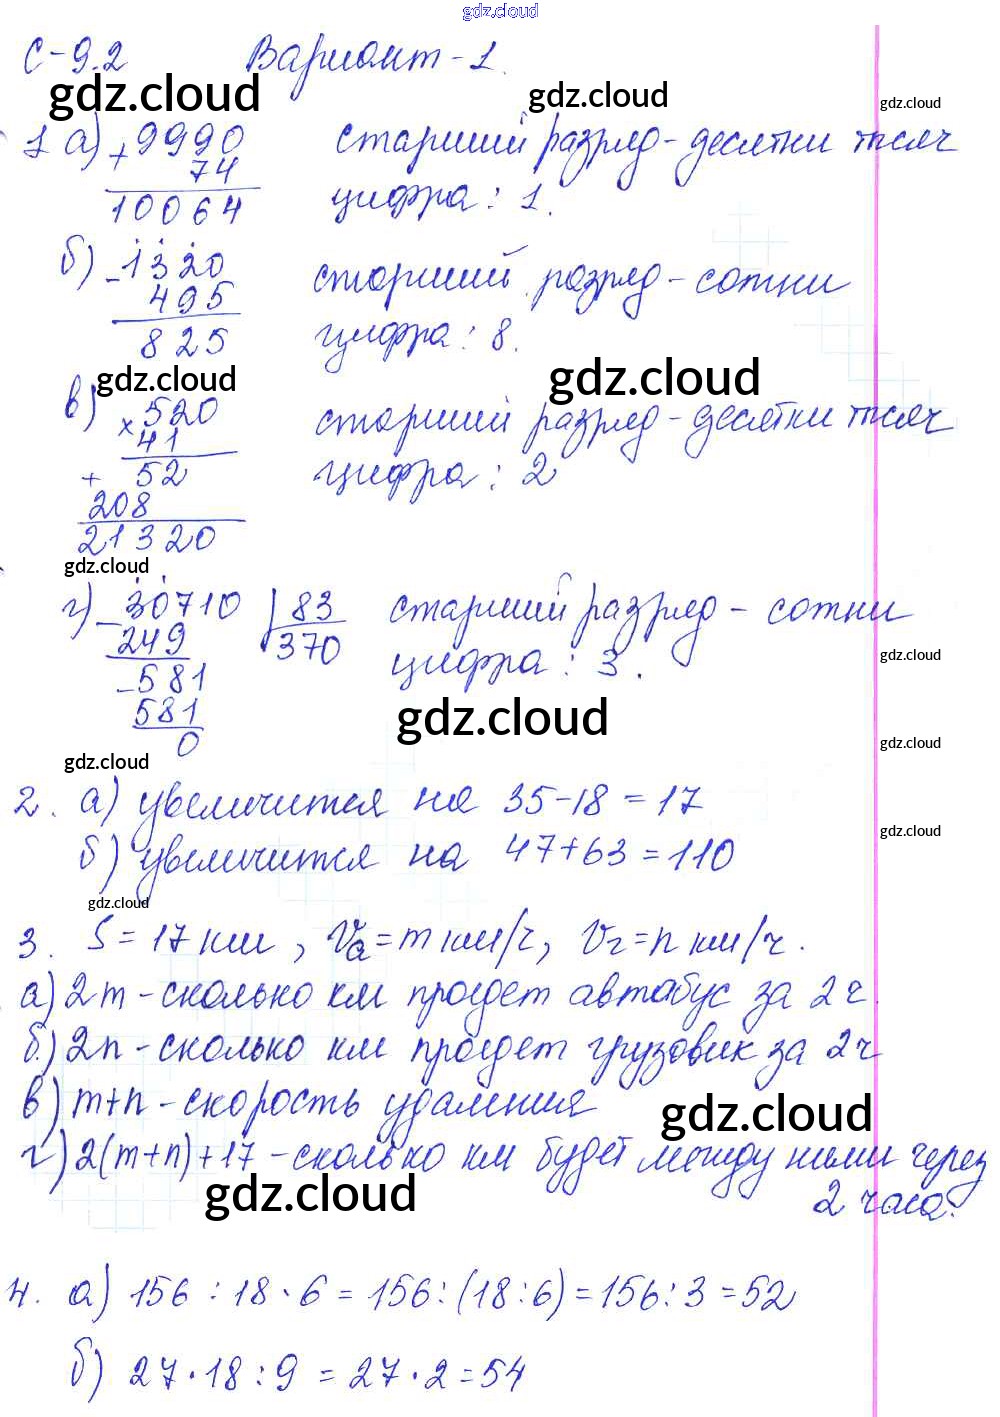 gdz.cloud
С-9.2 Вариант-1.
gdz.cloud gdz.cloud gdz.cloud
1 а) + 9990 старший разряд - десятки тысяч
74
10064 цифра: 1.
б) - 1320 старший разряд - сотни
495
825 цифра: 8.
gdz.cloud gdz.cloud
в) × 520 старший разряд - десятки тысяч
41
+ 52 цифра: 2
208
21320
gdz.cloud
г) - 30710 | 83 старший разряд - сотни
249 370
- 581 цифра: 3.
gdz.cloud
581
gdz.cloud
0
gdz.cloud gdz.cloud
2. а) увеличится на 35-18=17
б) увеличится на 47+63=110
gdz.cloud
gdz.cloud
3. S=17км, Vа=m км/ч, Vг=n км/ч.
а) 2m - сколько км проедет автобус за 2ч.
б) 2n - сколько км проедет грузовик за 2ч
в) m+n - скорость удаления
gdz.cloud
г) 2(m+n)+17 - сколько км будет между ними через
2 часа.
gdz.cloud
4. а) 156:18·6=156:(18:6)=156:3=52
б) 27·18:9=27·2=54